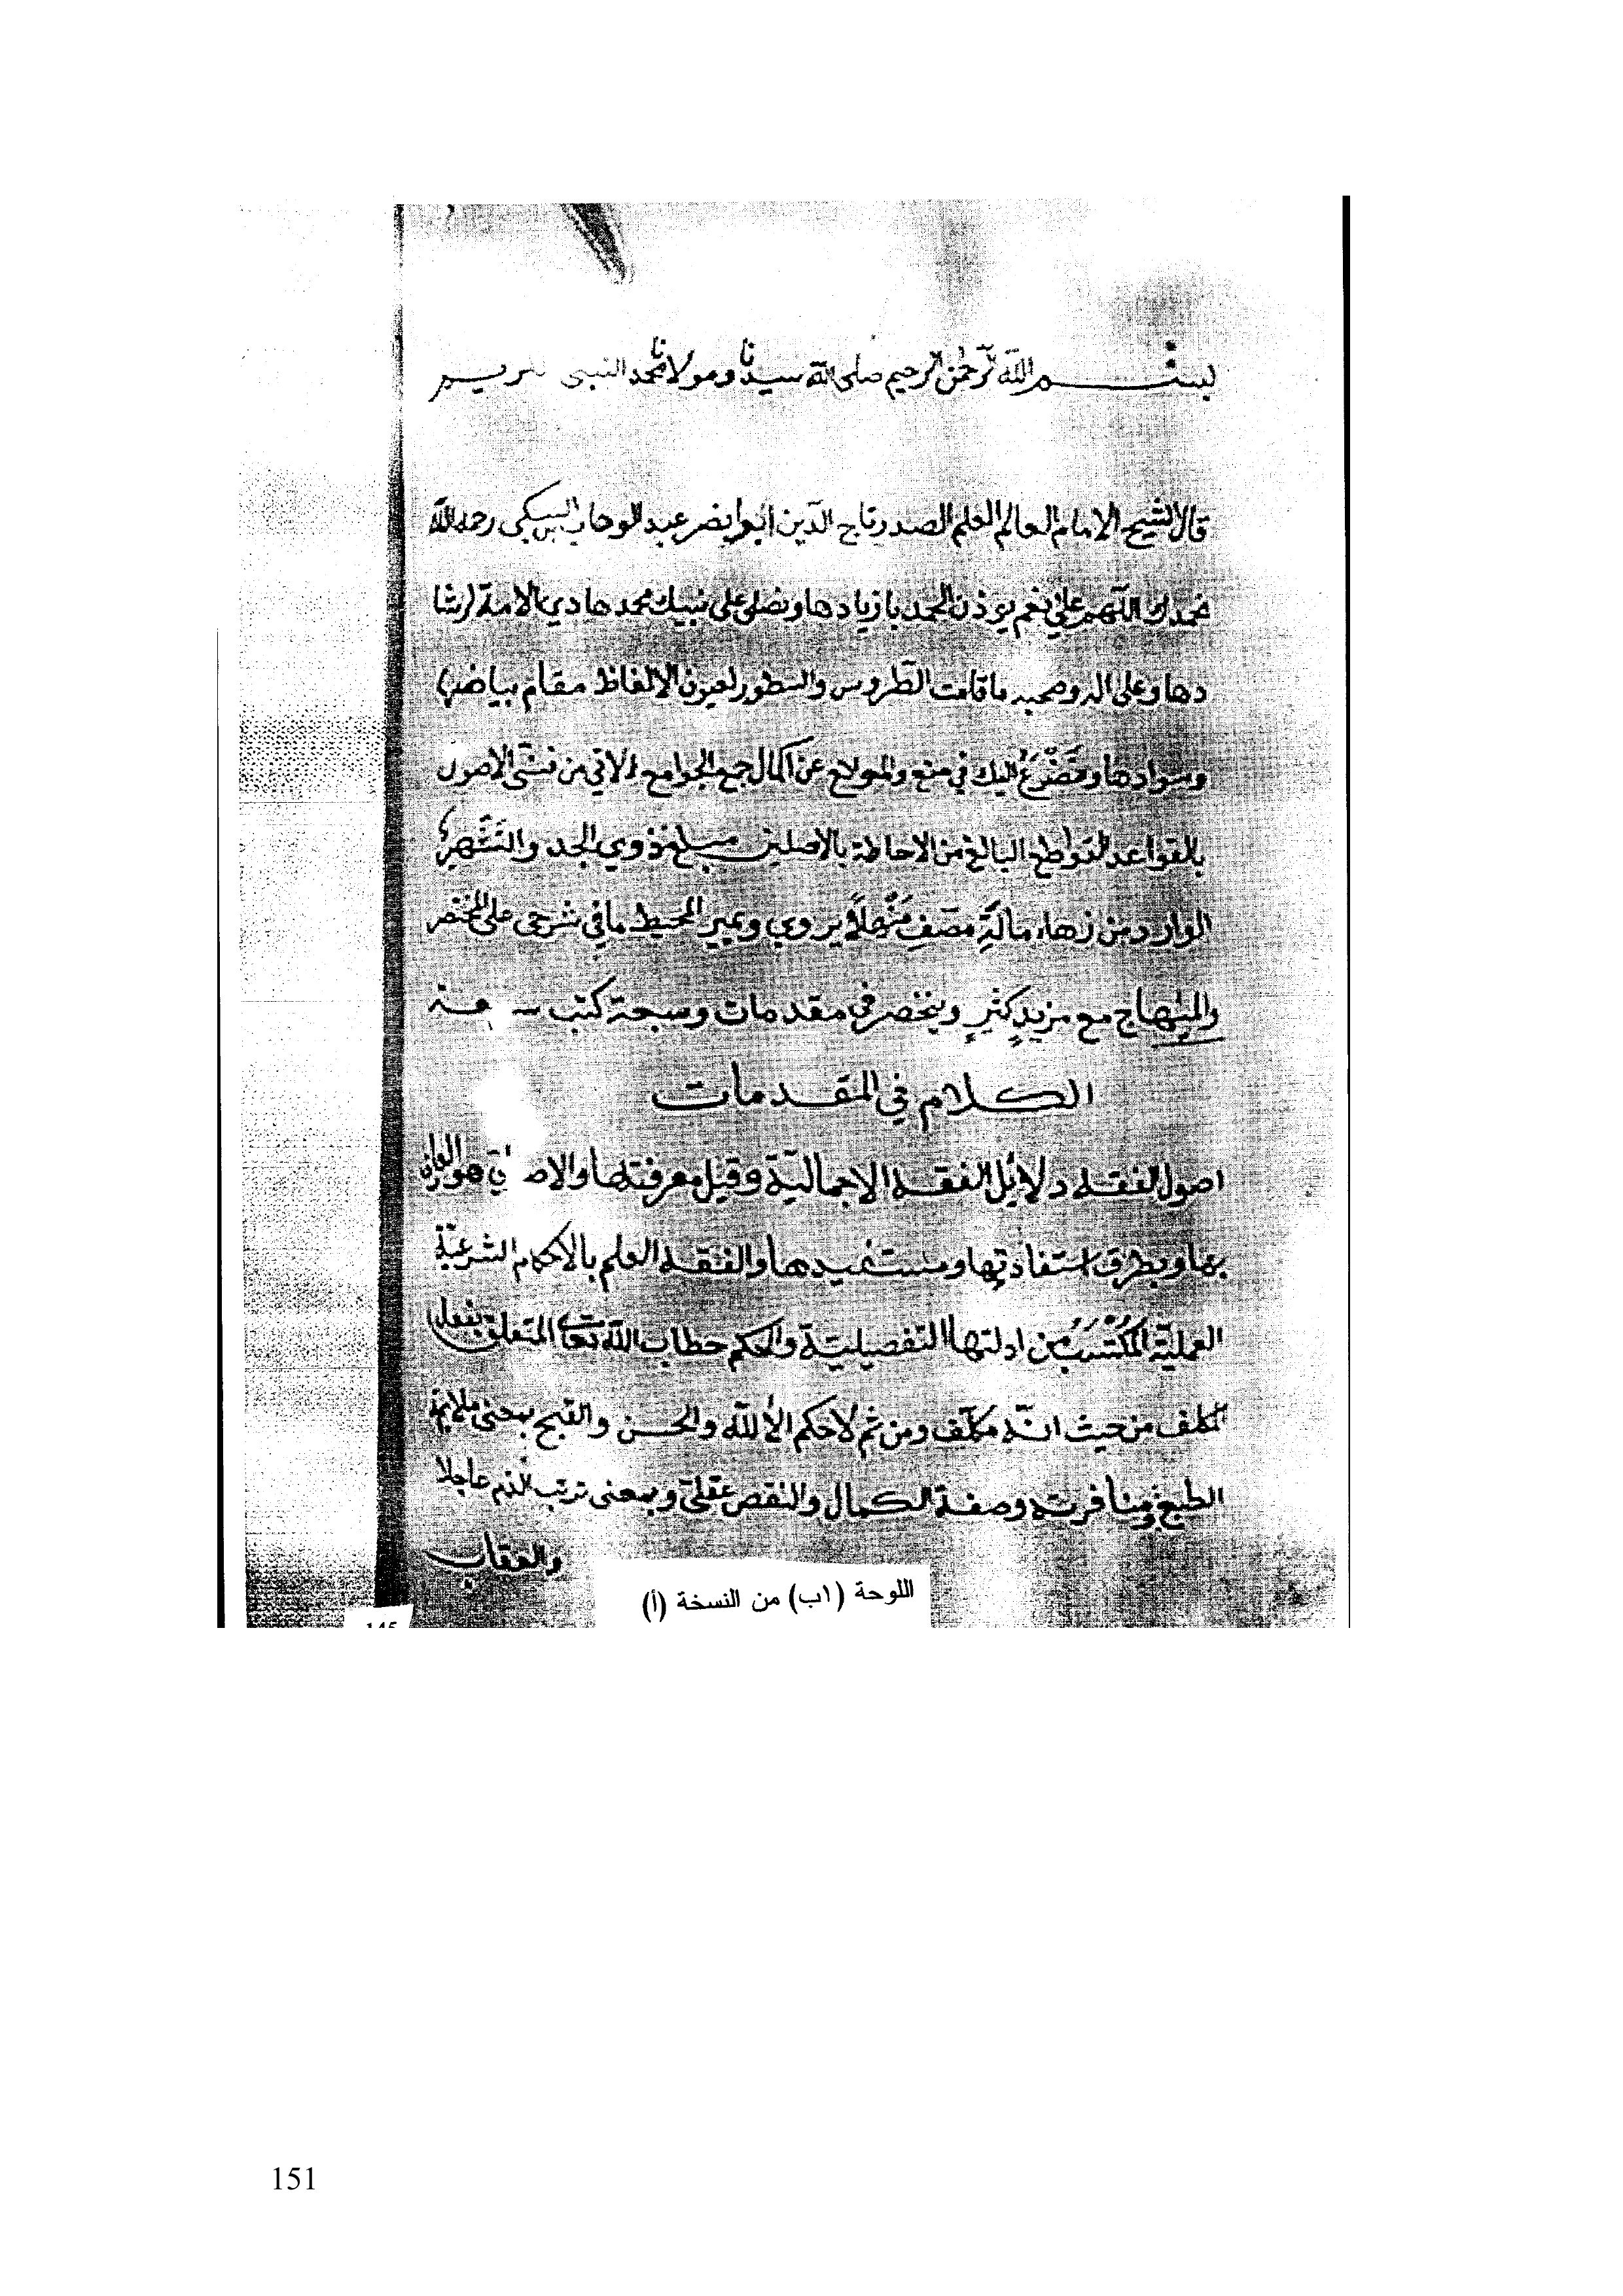 بسم الله الرحمن الرحيم صلى الله سيدنا ومولانا محمد النبي
قال الشيخ الامام العالم العلم الصدر تاج الدين ابوا نصر عبد الوهاب السبكي رحمه الله
نحمدك اللهم على نعم يوذن الحمد بازيادها ونصلي على نبيك محمد هادي الامة ارشا
دها وعلى اله وصحبه ما قامت الطروس والسطور لعيون الالفاظ مقام بياضها
وسوادها ونضرع اليك في منع الموانع عن اكمال جمع الجوامع الاتي من فني الاصول
بالقواعد القواطع البالغ من الاحاطة بالاصلين مبلغ ذوي الجد والتشمير
الوارد من زهاء مائة مصنف منهلا يروي ويمير المحيط بما في شرحي على المختصر
والمنهاج مع مزيد كثير وينحصر في مقدمات وسبعة كتب
الكلام في المقدمات
اصول الفقه دلائل الفقه الاجمالية وقيل معرفتها والاصولي هو العارف
بها وبطرق استفادتها ومستفيدها والفقه العلم بالاحكام الشرعية
العملية المكتسب من ادلتها التفصيلية والحكم خطاب الله تعالى المتعلق بفعل
المكلف من حيث انه مكلف ومن ثم لا حكم الا لله والحسن والقبح بمعنى ملائمة
الطبع ومنافرته وصفة الكمال والنقص عقلي وبمعنى ترتب الذم عاجلا
والعقاب
اللوحة (١ب) من النسخة (أ)
145
151